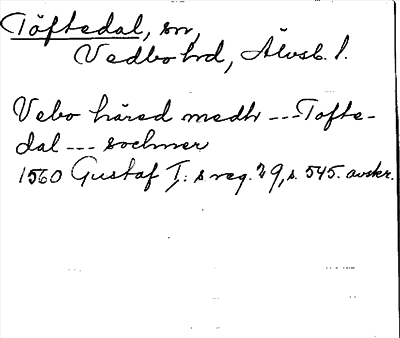 Töftedal, sn,
Vedbo hd, Älvsb. l.
Vebo häred medh --- Tofte-
dal --- sochner
1560 Gustaf I:s reg. 29, s. 545. avskr.